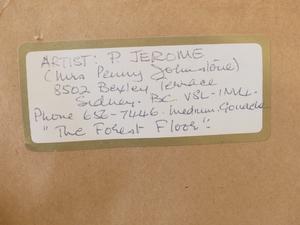 ARTIST: P. JEROME
(Mrs Penny Johnstone)
8502 Bexley Terrace
Sidney. BC. V8L-1N4.
Phone 656-7446. Medium. Gouache
"The Forest Floor".